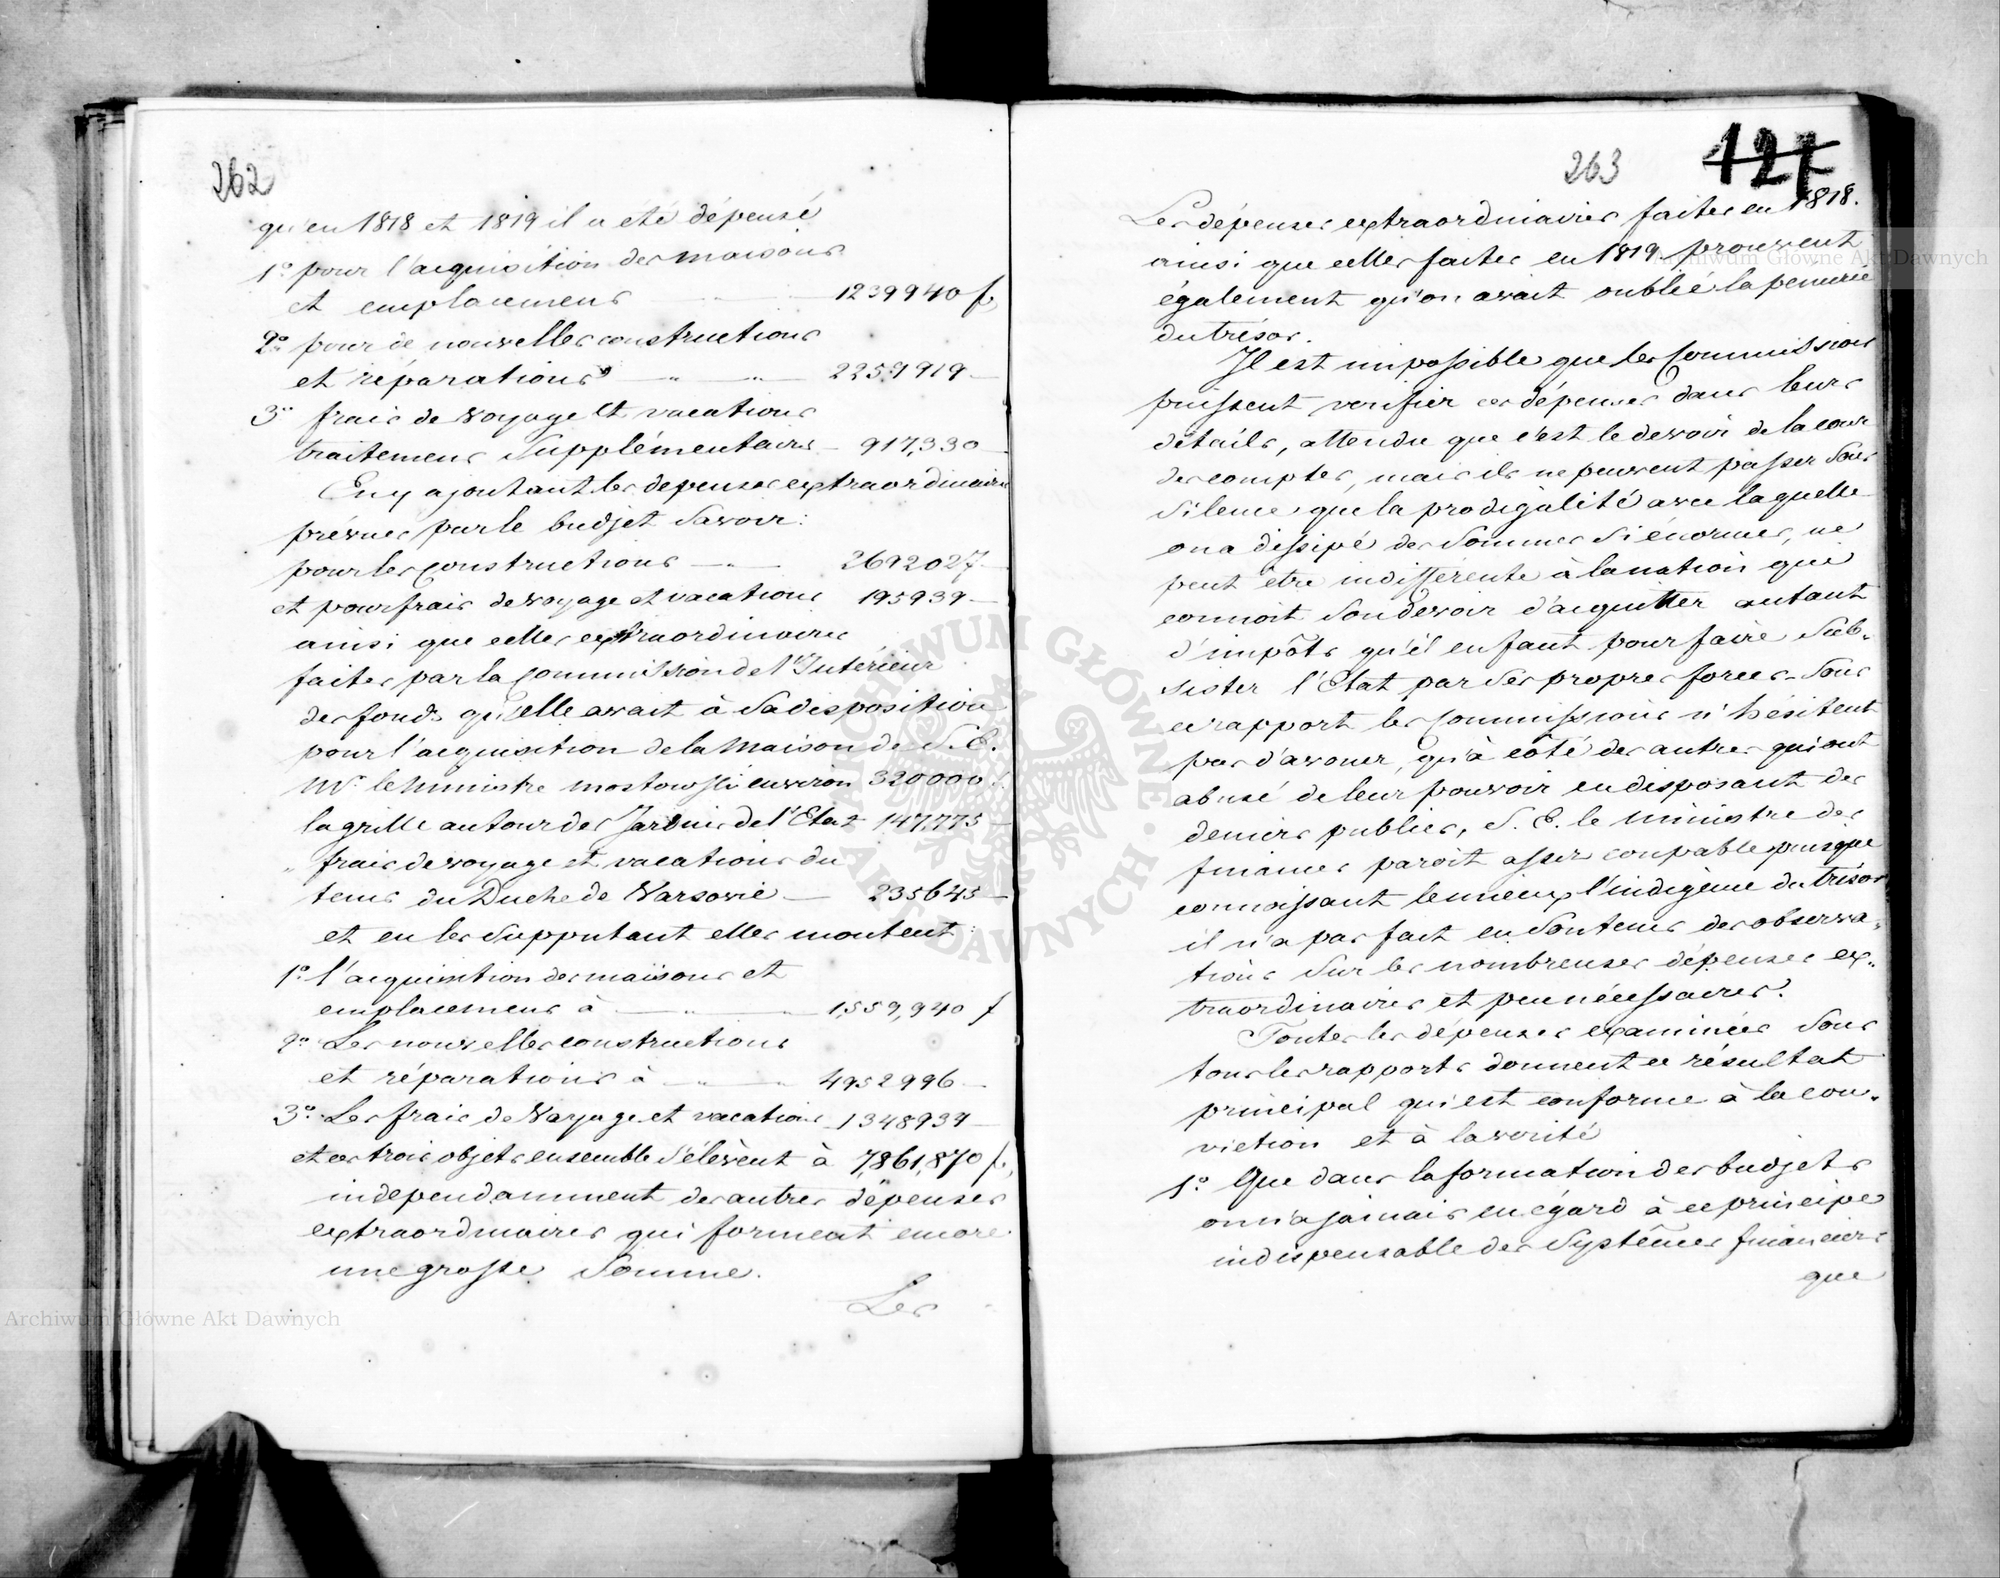 262
qu'en 1818 et 1819 il a été dépensé
1° pour l'acquisition des maisons
et emplacemens " 1239940 f.
2° pour de nouvelles constructions
et réparations " " 2259919
3° frais de voyage et vacations
traitemens supplémentaires 917,330
En y ajoutant les depenses extraordinaires
prévues par le budjet savoir:
pour les constructions " 2692027
et pour frais de voyage et vacations 195939
ainsi que celles extraordinaires
faites par la Commission de l'Intérieur
des fonds qu'elle avait à sa disposition
pour l'acquisition de la Maison de S. E.
Mr le Ministre Mostowski environ 320000 f.
la grille autour des Jardins de l'Etat 147,775
" frais de voyage et vacations du
tems du Duché de Varsovie 235645
et en les supputant elles montent:
1° l'acquisition des maisons et
emplacemens à " " 1,559,940 f
2° Les nouvelles constructions
et réparations à " " 4952996
3° Les frais de Voyage et vacations 1348939
et ces trois objets ensemble s'élèvent à 7,861,870 f.
independamment des autres dépenses
extraordinaires qui forment encore
une grosse somme.
Les
263
127
Les dépenses extraordinaires faites en 1818.
ainsi que celles faites en 1819, prouvent
également qu'on avait oublié la penurie
du trésor.
Il est impossible que les Commissions
puissent verifier ces dépenses dans leurs
détails, attendu que c'est le devoir de la cour
des comptes, mais ils ne peuvent passer sous
silence que la prodigalité avec laquelle
on a dissipé des sommes si énormes, ne
peut être indifferente à la nation qui
connoit son devoir d'acquitter autant
d'impôts qu'il en faut pour faire sub-
sister l'Etat par ses propres forces. Sous
ce rapport les Commissions n'hésitent
pas d'avouer, qu'à côté des autres qui ont
abusé de leur pouvoir en disposant des
deniers publics, S. E. le Ministre des
finances paroit assez coupable puisque
connoissant le mieux l'indigence du trésor
il n'a pas fait en son tems des observa-
tions sur les nombreuses dépenses ex-
traordinaires et peu nécessaires.
Toutes les dépenses examinées sous
tous les rapports donnent ce résultat
principal qui est conforme à la con-
viction et à la verité
1° Que dans la formation des budjets
on n'a jamais eu égard à ce principe
indispensable des Systêmes financiers
que
Archiwum Główne Akt Dawnych
Archiwum Główne Akt Dawnych
ARCHIWUM GŁÓWNE AKT DAWNYCH